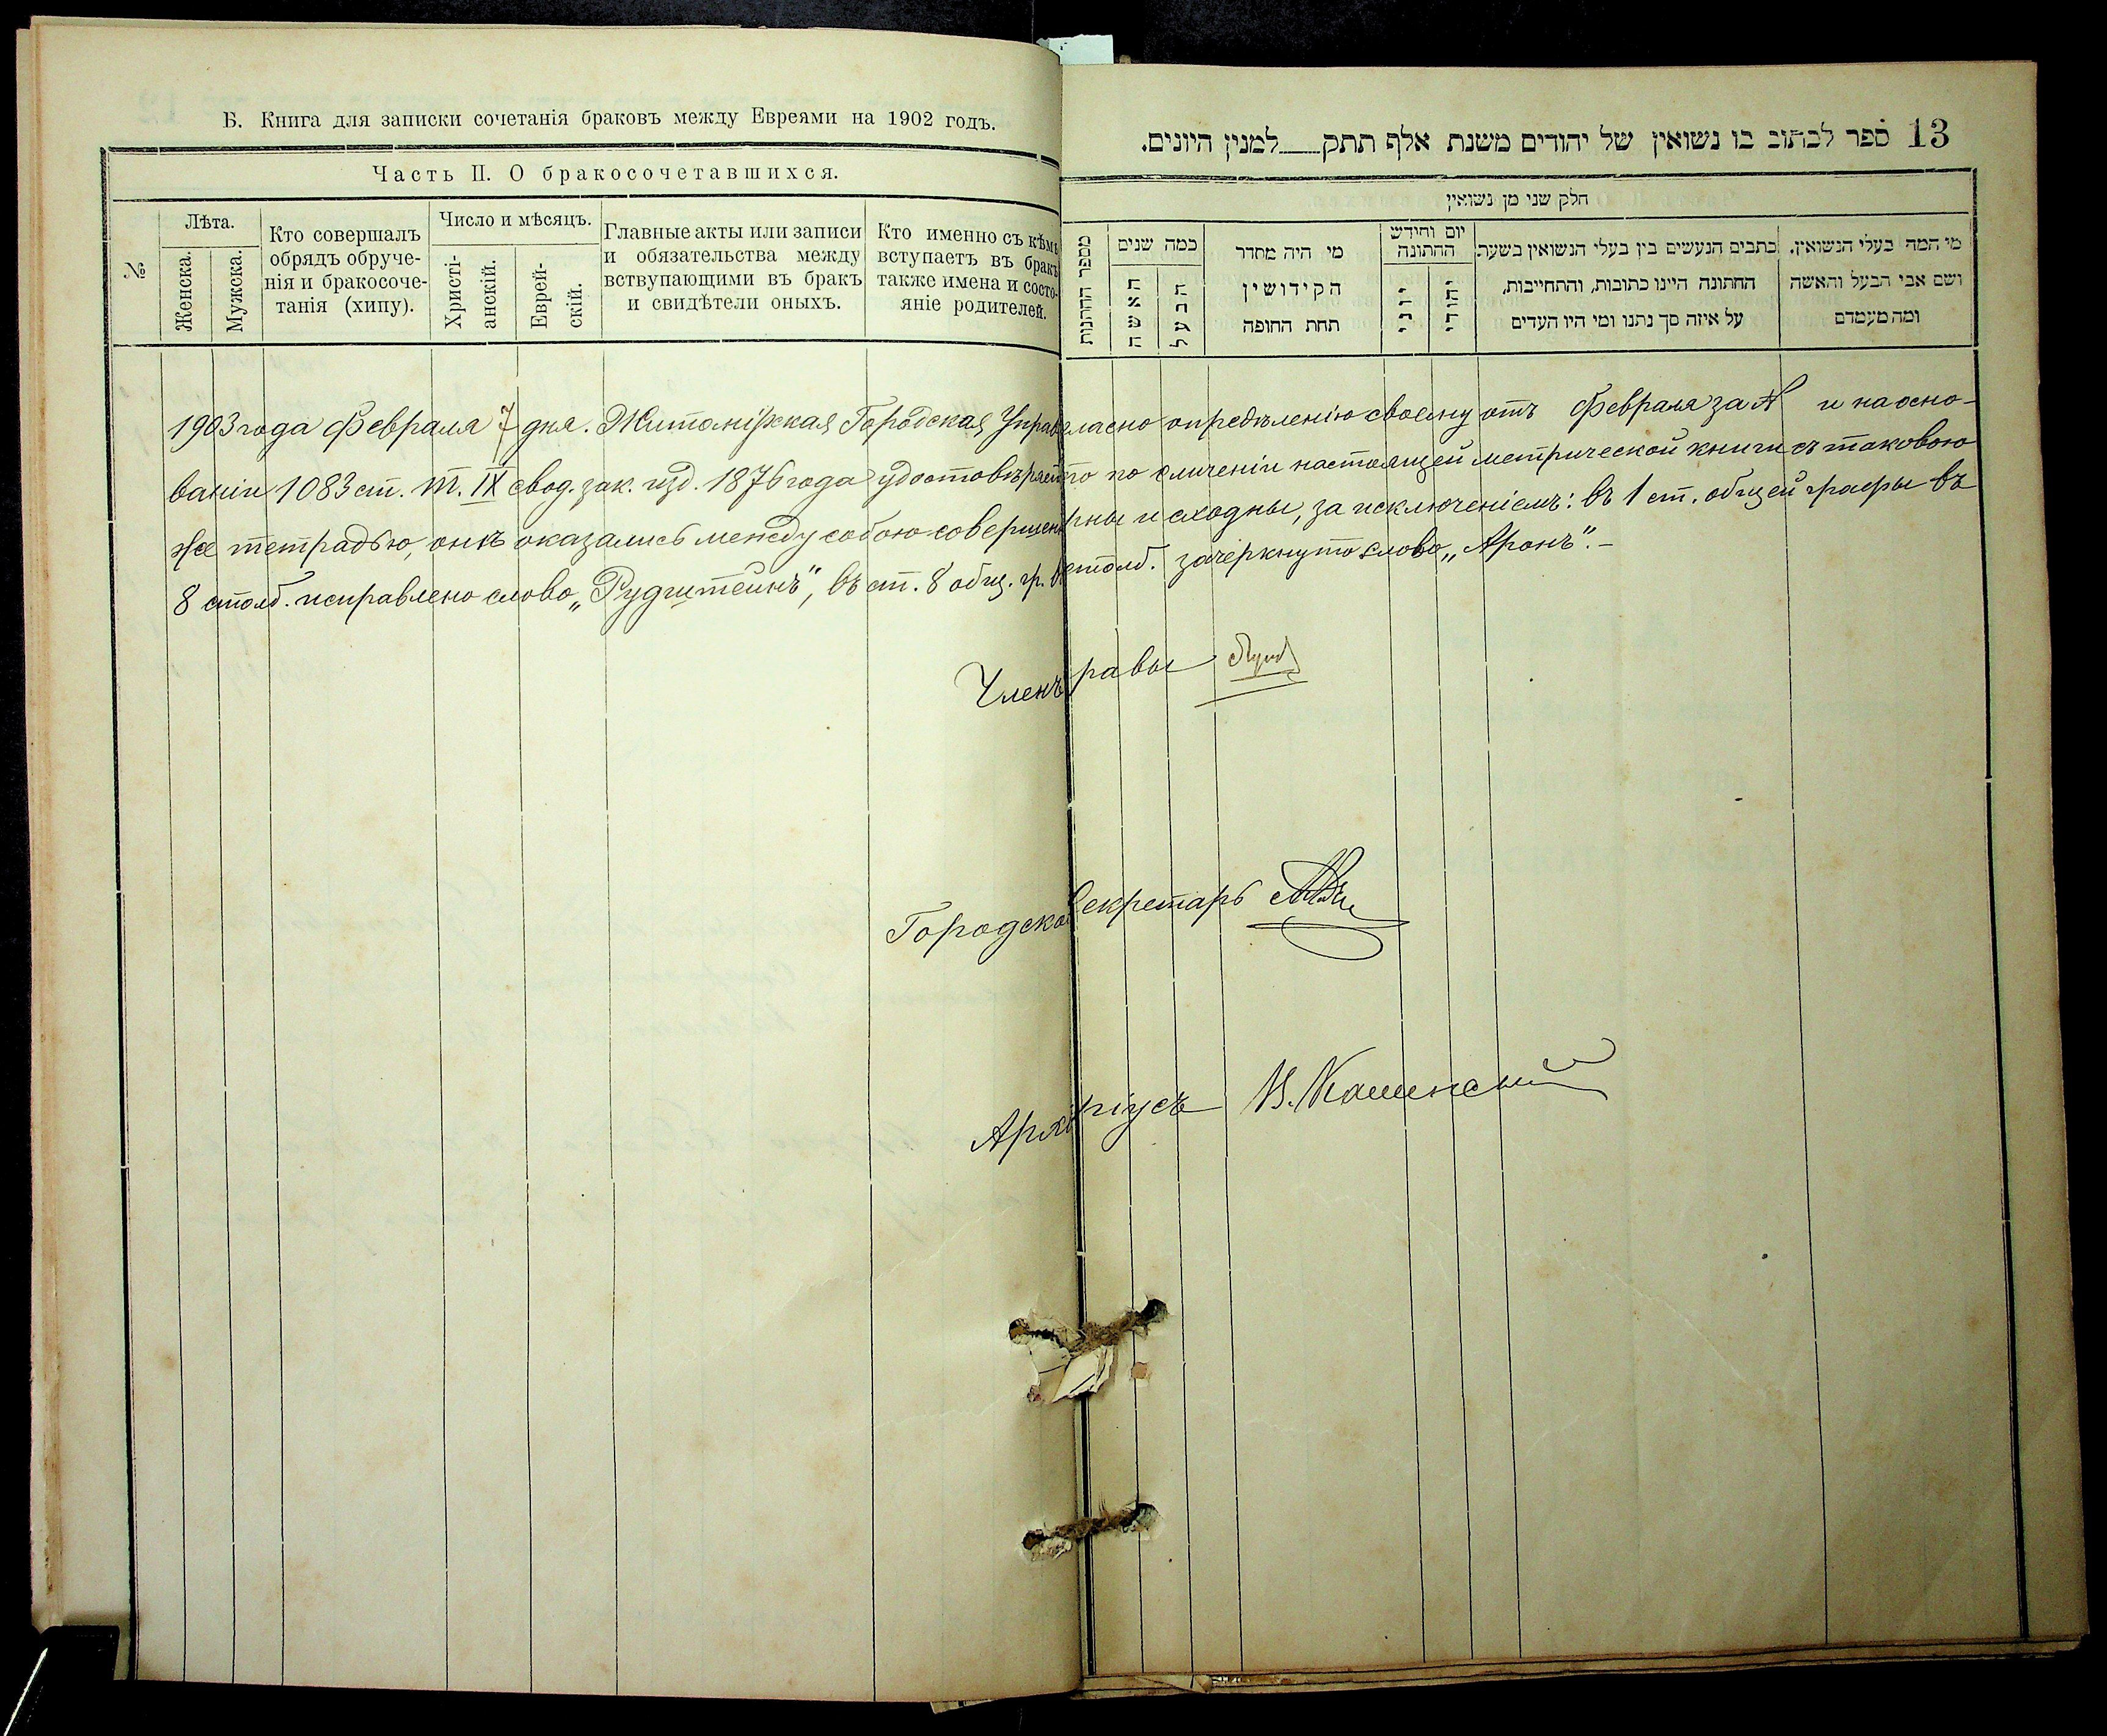 Б. Книга для записки сочетанія браковъ между Евреями на 1902 годъ.
Часть II. О бракосочетавшихся.
№
Лѣта.
Женска.
Мужска.
Кто совершалъ
обрядъ обруче-
нія и бракосоче-
танія (хипу).
Число и мѣсяцъ.
Христі-
анскій.
Еврей-
скій.
Главные акты или записи
и обязательства между
вствупающими въ бракъ
и свидѣтели оныхъ.
Кто именно съ кѣмъ
вступаетъ въ бракъ
также имена и состо-
яніе родителей.
13 ספר לכתוב בו נשואין של יהודים משנת אלף תתק___למנין היונים.
חלק שני מן נשואין
מספר החתונות
כמה שנים
האשה
הבעל
מי היה מסדר
הקידושין
תחת החופה
יום וחודש
החתונה
יוני
יהודי
כתבים הנעשים בין בעלי הנשואין בשעת
החתונה היינו כתובות, והתחייבות,
על איזה סך נתנו ומי היו העדים
מי המה בעלי הנשואין.
ושם אבי הבעל והאשה
ומה מעמדם
1903 года Февраля 7 дня. Житомірская Городская Управ гласно опредѣленію своему отъ Февраля за № и на осно-
ваніи 1083 ст. т. IX свод. зак. изд. 1876 года удостовѣряет то по сличеніи настоящей метрической книги съ таковою
же тетрадью, онѣ оказались между собою совершен рны и сходны, за исключеніемъ: въ 1 ст. общей графы въ
8 столб. исправлено слово „Рудштейнъ", въ ст. 8 общ. гр. в столб. зачеркнуто слово „Аронъ". –
Членъ равы
Городско Секретарь
Архи ріусъ В. Каменскій